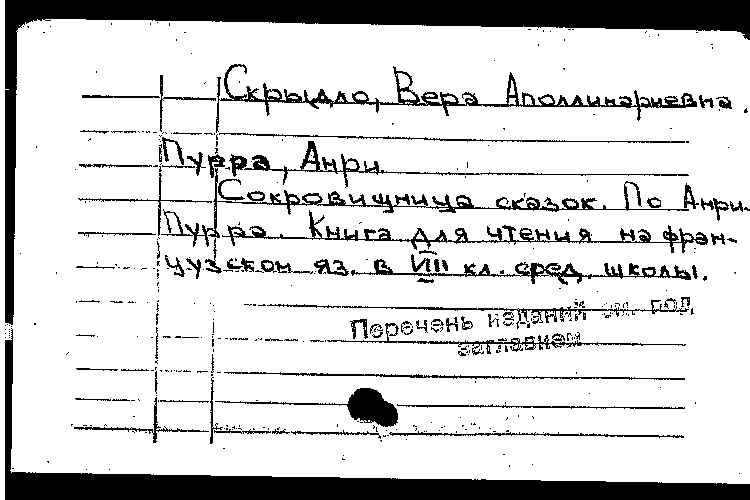 Скрыдло, Вера Аполлинариевна.
Пурра, Анри.
Сокровищница сказок. По Анри
Пурра. Книга для чтения на фран-
цузском яз. в VIII кл. сред. школы.
Перечень изданий см. под
заглавием